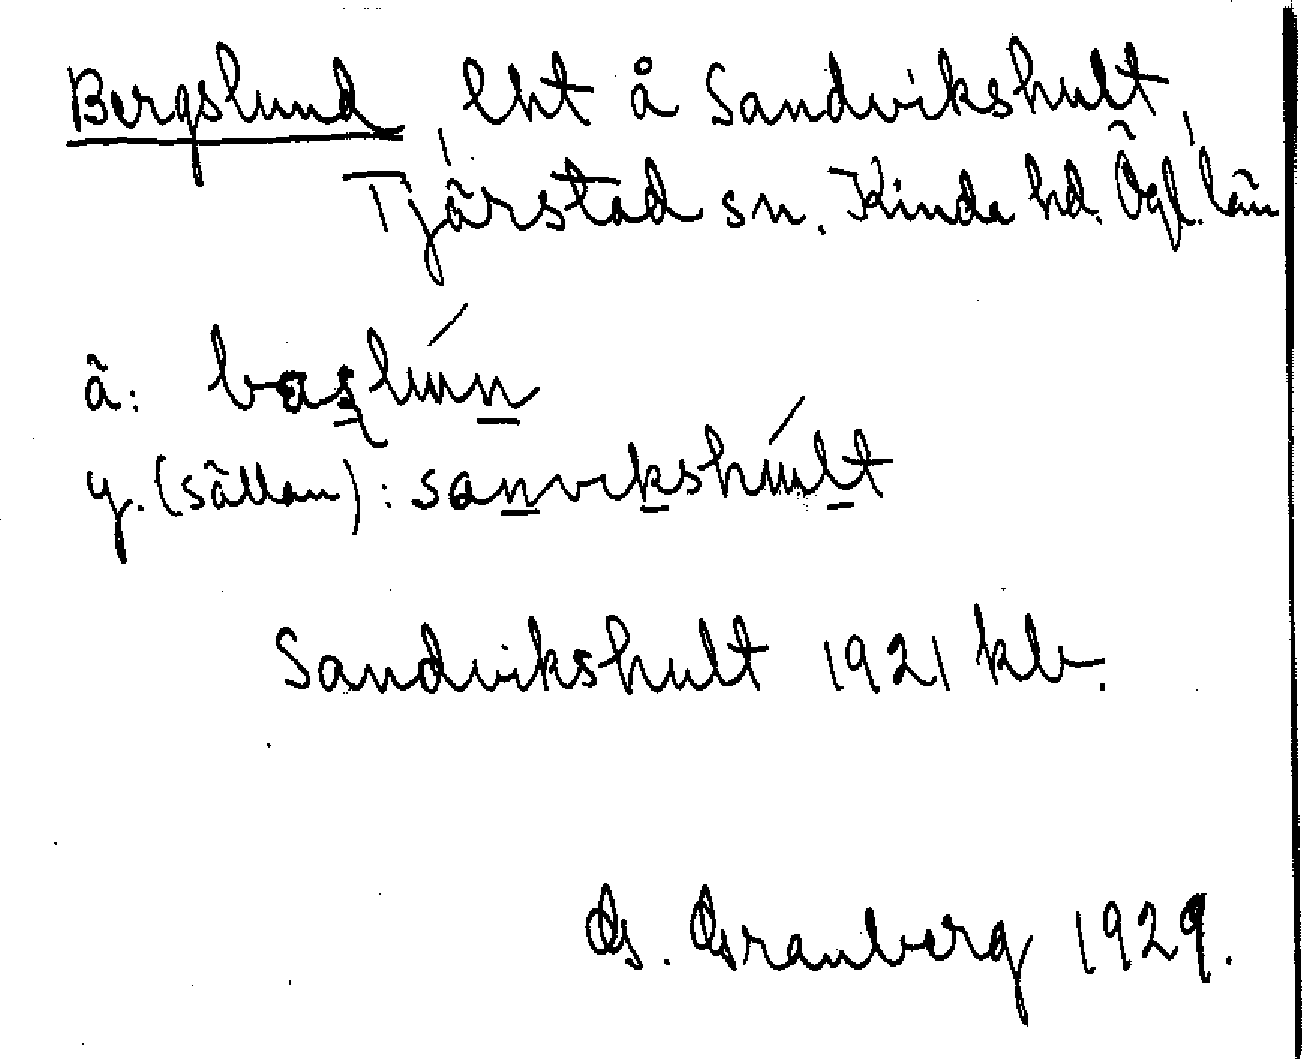 Bergslund, lht å Sandvikshult,
Tjärstad sn. Kinda hd. Ögl. län
ä: baslún
y. (sällan): sanvikshúlt
Sandvikshult 1921 kb.
G. Granberg 1929.